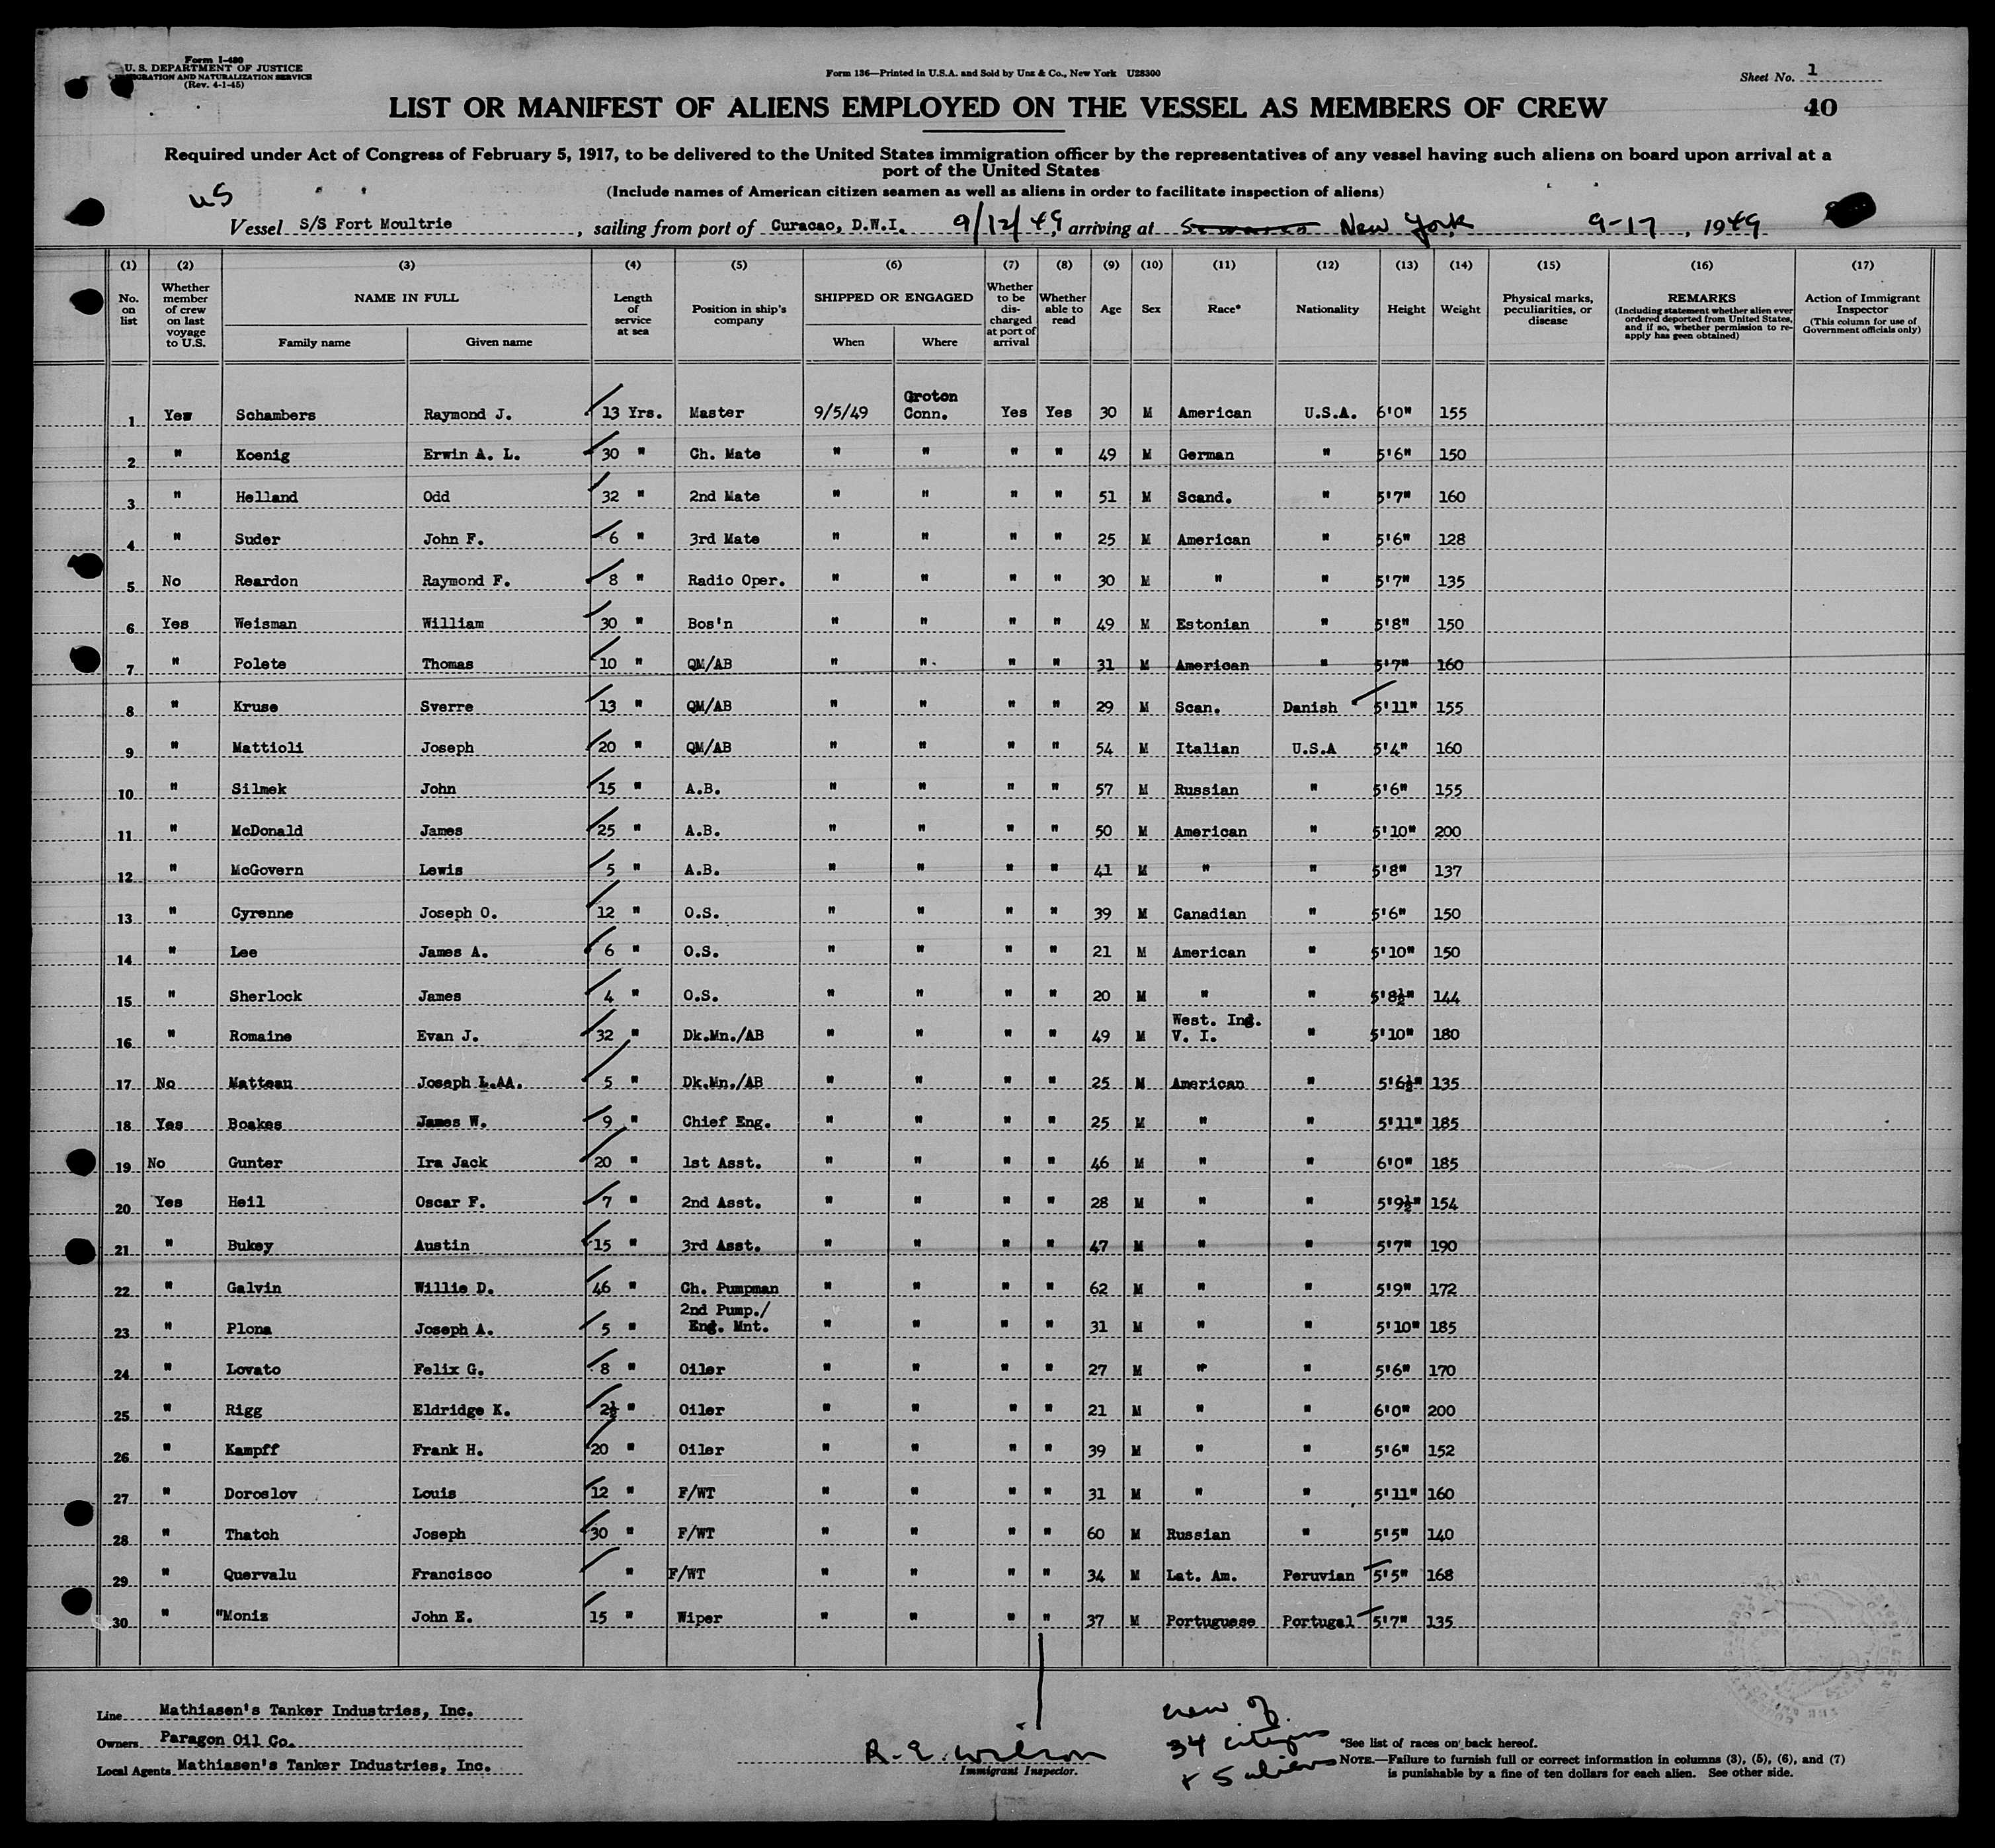 Form I-480
U. S. DEPARTMENT OF JUSTICE
IMMIGRATION AND NATURALIZATION SERVICE
(Rev. 4-1-45)
Form 136—Printed in U.S.A. and Sold by Unz & Co., New York U28300
Sheet No. 1
40
LIST OR MANIFEST OF ALIENS EMPLOYED ON THE VESSEL AS MEMBERS OF CREW
Required under Act of Congress of February 5, 1917, to be delivered to the United States immigration officer by the representatives of any vessel having such aliens on board upon arrival at a
port of the United States
(Include names of American citizen seamen as well as aliens in order to facilitate inspection of aliens)
US
Vessel S/S Fort Moultrie, sailing from port of Curacao, D.W.I. 9/12/49, arriving at New York 9-17, 1949
(1) (2) (3) (4) (5) (6) (7) (8) (9) (10) (11) (12) (13) (14) (15) (16) (17)
No. on list
Whether member of crew on last voyage to U.S.
NAME IN FULL
Family name
Given name
Length of service at sea
Position in ship's company
SHIPPED OR ENGAGED
When
Where
Whether to be discharged at port of arrival
Whether able to read
Age
Sex
Race*
Nationality
Height
Weight
Physical marks, peculiarities, or disease
REMARKS
(Including statement whether alien ever ordered deported from United States, and if so, whether permission to re-apply has geen obtained)
Action of Immigrant Inspector
(This column for use of Government officials only)
1 Yes Schambers Raymond J. 13 Yrs. Master 9/5/49 Groton Conn. Yes Yes 30 M American U.S.A. 6'0" 155
2 " Koenig Erwin A. L. 30 " Ch. Mate " " " " 49 M German " 5'6" 150
3 " Helland Odd 32 " 2nd Mate " " " " 51 M Scand. " 5'7" 160
4 " Suder John F. 6 " 3rd Mate " " " " 25 M American " 5'6" 128
5 No Reardon Raymond F. 8 " Radio Oper. " " " " 30 M " " 5'7" 135
6 Yes Weisman William 30 " Bos'n " " " " 49 M Estonian " 5'8" 150
7 " Polete Thomas 10 " QM/AB " " " " 31 M American " 5'7" 160
8 " Kruse Sverre 13 " QM/AB " " " " 29 M Scan. Danish 5'11" 155
9 " Mattioli Joseph 20 " QM/AB " " " " 54 M Italian U.S.A 5'4" 160
10 " Silmek John 15 " A.B. " " " " 57 M Russian " 5'6" 155
11 " McDonald James 25 " A.B. " " " " 50 M American " 5'10" 200
12 " McGovern Lewis 5 " A.B. " " " " 41 M " " 5'8" 137
13 " Cyrenne Joseph O. 12 " O.S. " " " " 39 M Canadian " 5'6" 150
14 " Lee James A. 6 " O.S. " " " " 21 M American " 5'10" 150
15 " Sherlock James 4 " O.S. " " " " 20 M " " 5'8½" 144
16 " Romaine Evan J. 32 " Dk.Mn./AB " " " " 49 M West. Ind. V. I. " 5'10" 180
17 No Matteau Joseph L.AA. 5 " Dk.Mn./AB " " " " 25 M American " 5'6½" 135
18 Yes Boakes James W. 9 " Chief Eng. " " " " 25 M " " 5'11" 185
19 No Gunter Ira Jack 20 " 1st Asst. " " " " 46 M " " 6'0" 185
20 Yes Heil Oscar F. 7 " 2nd Asst. " " " " 28 M " " 5'9½" 154
21 " Bukey Austin 15 " 3rd Asst. " " " " 47 M " " 5'7" 190
22 " Galvin Willie D. 46 " Ch. Pumpman " " " " 62 M " " 5'9" 172
23 " Plona Joseph A. 5 " 2nd Pump./ Eng. Mnt. " " " " 31 M " " 5'10" 185
24 " Lovato Felix G. 8 " Oiler " " " " 27 M " " 5'6" 170
25 " Rigg Eldridge K. 2½ " Oiler " " " " 21 M " " 6'0" 200
26 " Kampff Frank H. 20 " Oiler " " " " 39 M " " 5'6" 152
27 " Doroslov Louis 12 " F/WT " " " " 31 M " " 5'11" 160
28 " Thatch Joseph 30 " F/WT " " " " 60 M Russian " 5'5" 140
29 " Quervalu Francisco " F/WT " " " " 34 M Lat. Am. Peruvian 5'5" 168
30 " "Moniz John E. 15 " Wiper " " " " 37 M Portuguese Portugal 5'7" 135
Line Mathiasen's Tanker Industries, Inc.
Owners Paragon Oil Co.
Local Agents Mathiasen's Tanker Industries, Inc.
R. E. Wilson
Immigrant Inspector.
crew of
34 citizens
+ 5 aliens
*See list of races on back hereof.
NOTE.—Failure to furnish full or correct information in columns (3), (5), (6), and (7)
is punishable by a fine of ten dollars for each alien. See other side.